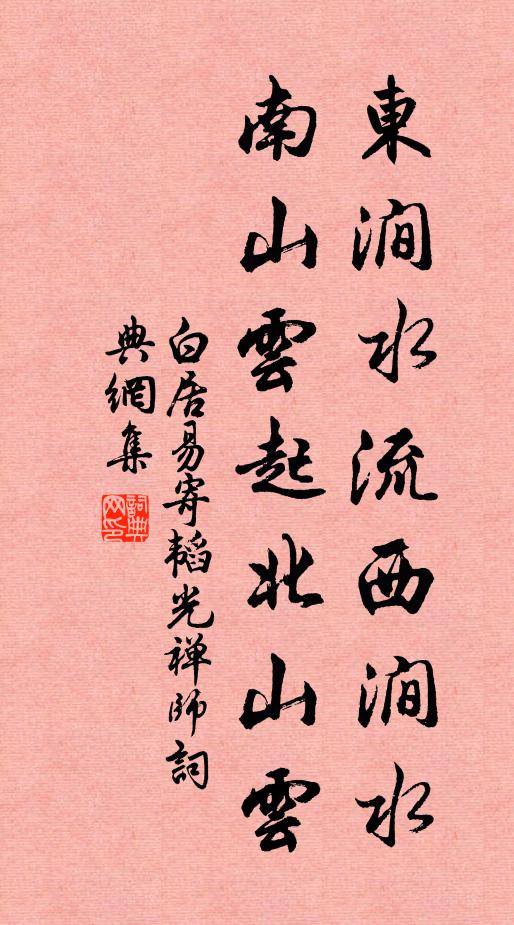 東澗水流西澗水
南山雲起北山雲
白居易寄韬光禅師詞
典網集
詞典
网印